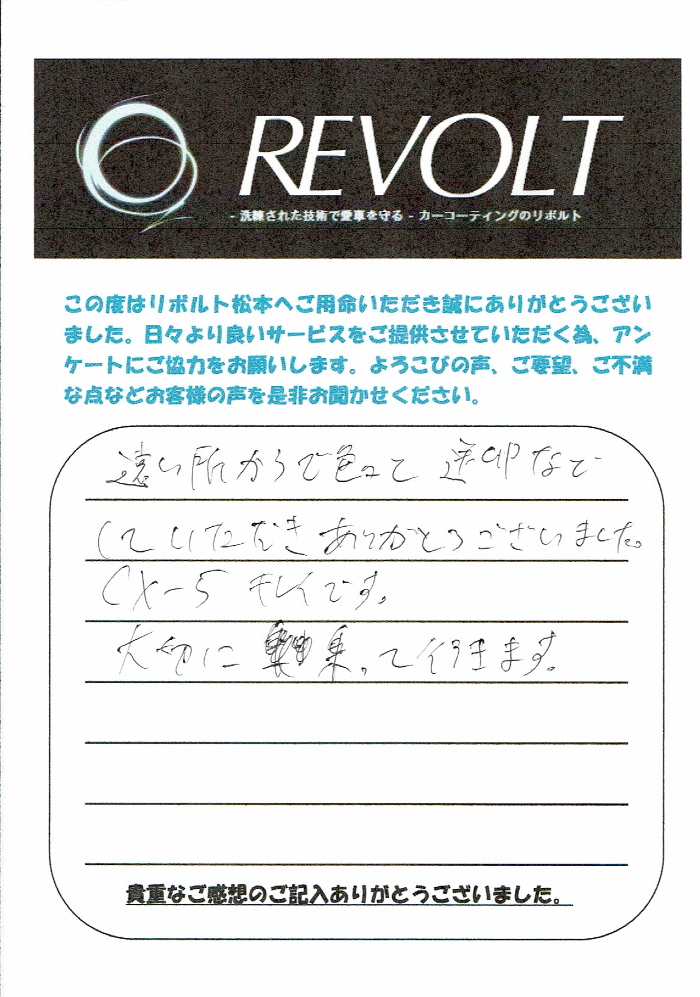 REVOLT
- 洗練された技術で愛車を守る - カーコーティングのリボルト
この度はリボルト松本へご用命いただき誠にありがとうござい
ました。日々より良いサービスをご提供させていただく為、アン
ケートにご協力をお願いします。よろこびの声、ご要望、ご不満
な点などお客様の声を是非お聞かせください。
遠い所からで色々と 送迎なで
していただきありがとうございました。
CX-5 キレイです。
大切に 乗って行きます。
貴重なご感想のご記入ありがとうございました。